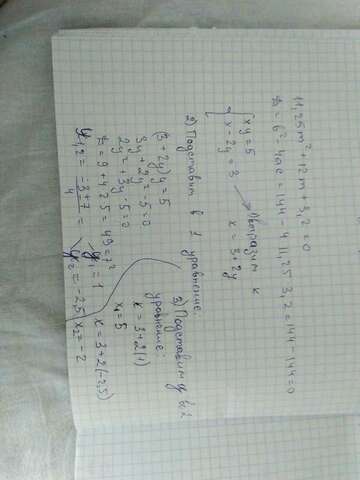 11,25m²+12m+3,2=0
D=b²-4ac=144-4·11,25·3,2=144-144=0
{xy=5
x-2y=3 → Выразим x
x=3+2y
2) Подставим в 1 уравнение
(3+2y)y=5
3y+2y²-5=0
2y²+3y-5=0
D=9+4·2·5=49=7²
y1,2=-3±7/4=
y1=1
y2=-2,5
3) Подставим y в 2
уравнение:
x=3+2(1)
x1=5
x=3+2(-2,5)
x2=-2